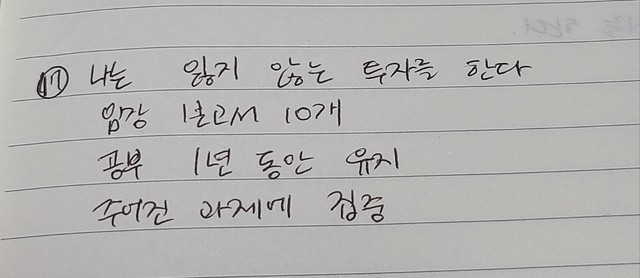 ⑰ 나는 잃지 않는 투자를 한다
임장 보고서 10개
공부 1년 동안 유지
주어진 과제에 집중